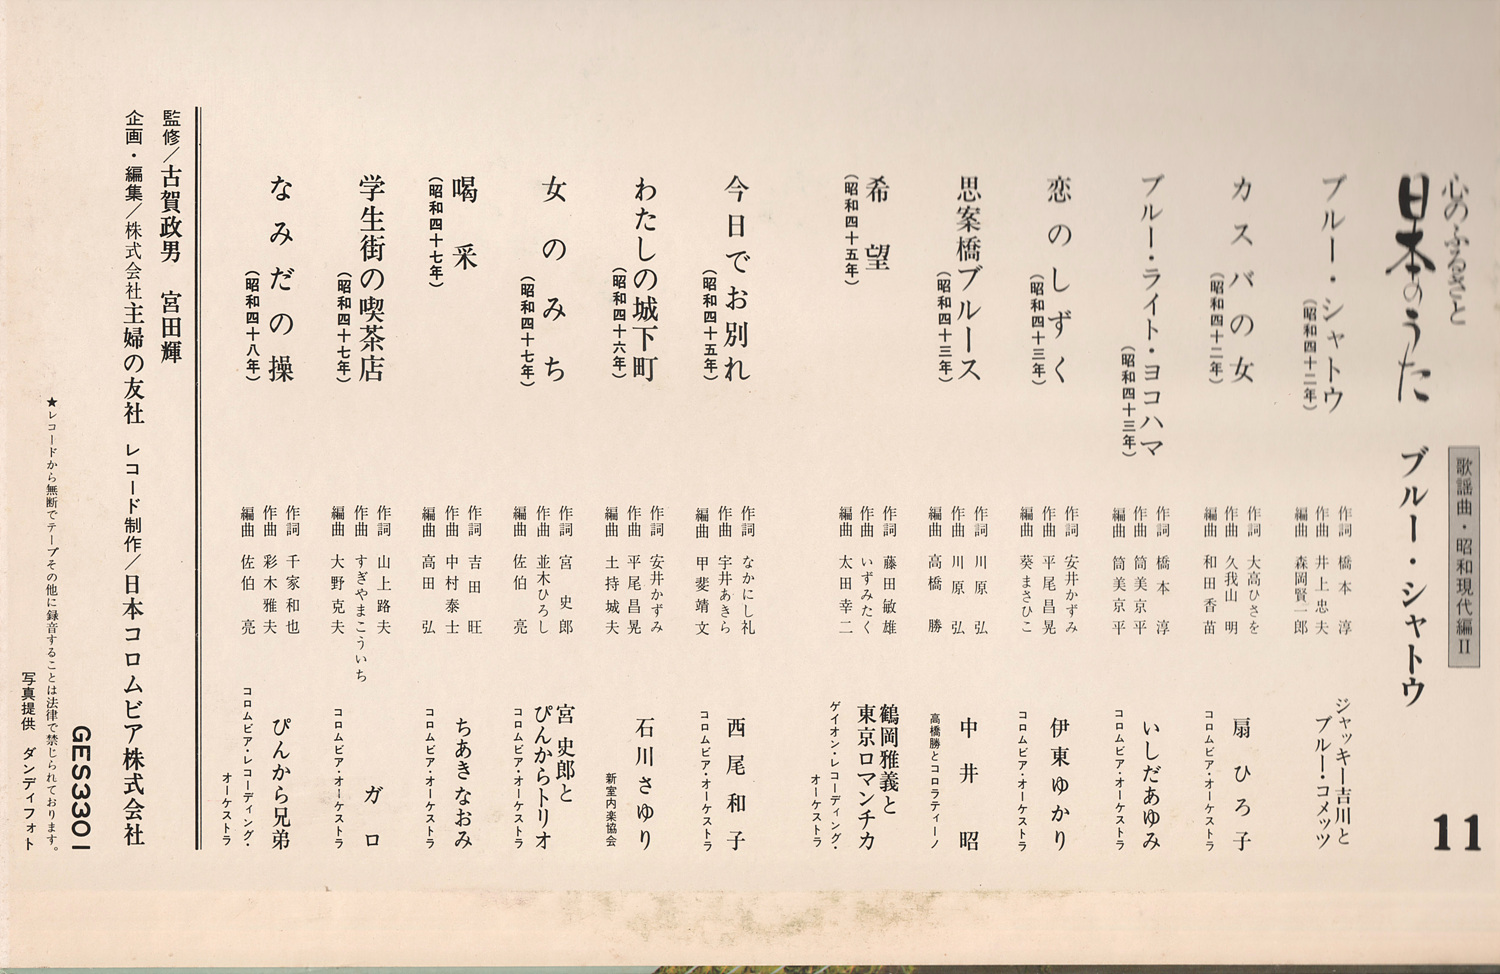 心のふるさと
日本のうた
ブルー・シャトウ
歌謡曲・昭和現代編II
11
ブルー・シャトウ
(昭和四十二年)
作詞 橋本 淳
作曲 井上忠夫
編曲 森岡賢一郎
ジャッキー吉川と
ブルー・コメッツ
カスバの女
(昭和四十二年)
作詞 大高ひさを
作曲 久我山 明
編曲 和田香苗
扇 ひろ子
コロムビア・オーケストラ
ブルー・ライト・ヨコハマ
(昭和四十三年)
作詞 橋本 淳
作曲 筒美京平
編曲 筒美京平
いしだあゆみ
コロムビア・オーケストラ
恋のしずく
(昭和四十三年)
作詞 安井かずみ
作曲 平尾昌晃
編曲 葵まさひこ
伊東ゆかり
コロムビア・オーケストラ
思案橋ブルース
(昭和四十三年)
作詞 川原 弘
作曲 川原 弘
編曲 高橋 勝
中井 昭
高橋勝とコロラティーノ
希望
(昭和四十五年)
作詞 藤田敏雄
作曲 いずみたく
編曲 太田幸二
鶴岡雅義と
東京ロマンチカ
ゲイオン・レコーディング・
オーケストラ
今日でお別れ
(昭和四十五年)
作詞 なかにし礼
作曲 宇井あきら
編曲 甲斐靖文
西尾和子
コロムビア・オーケストラ
わたしの城下町
(昭和四十六年)
作詞 安井かずみ
作曲 平尾昌晃
編曲 土持城夫
石川さゆり
新室内楽協会
女のみち
(昭和四十七年)
作詞 宮 史郎
作曲 並木ひろし
編曲 佐伯 亮
宮 史郎と
ぴんからトリオ
コロムビア・オーケストラ
喝采
(昭和四十七年)
作詞 吉田 旺
作曲 中村泰士
編曲 高田 弘
ちあきなおみ
コロムビア・オーケストラ
学生街の喫茶店
(昭和四十七年)
作詞 山上路夫
作曲 すぎやまこういち
編曲 大野克夫
ガロ
コロムビア・オーケストラ
なみだの操
(昭和四十八年)
作詞 千家和也
作曲 彩木雅夫
編曲 佐伯 亮
ぴんから兄弟
コロムビア・レコーディング・
オーケストラ
監修/古賀政男 宮田輝
企画・編集/株式会社主婦の友社 レコード制作/日本コロムビア株式会社
GES3301
★レコードから無断でテープその他に録音することは法律で禁じられております。
写真提供 ダンディフォト